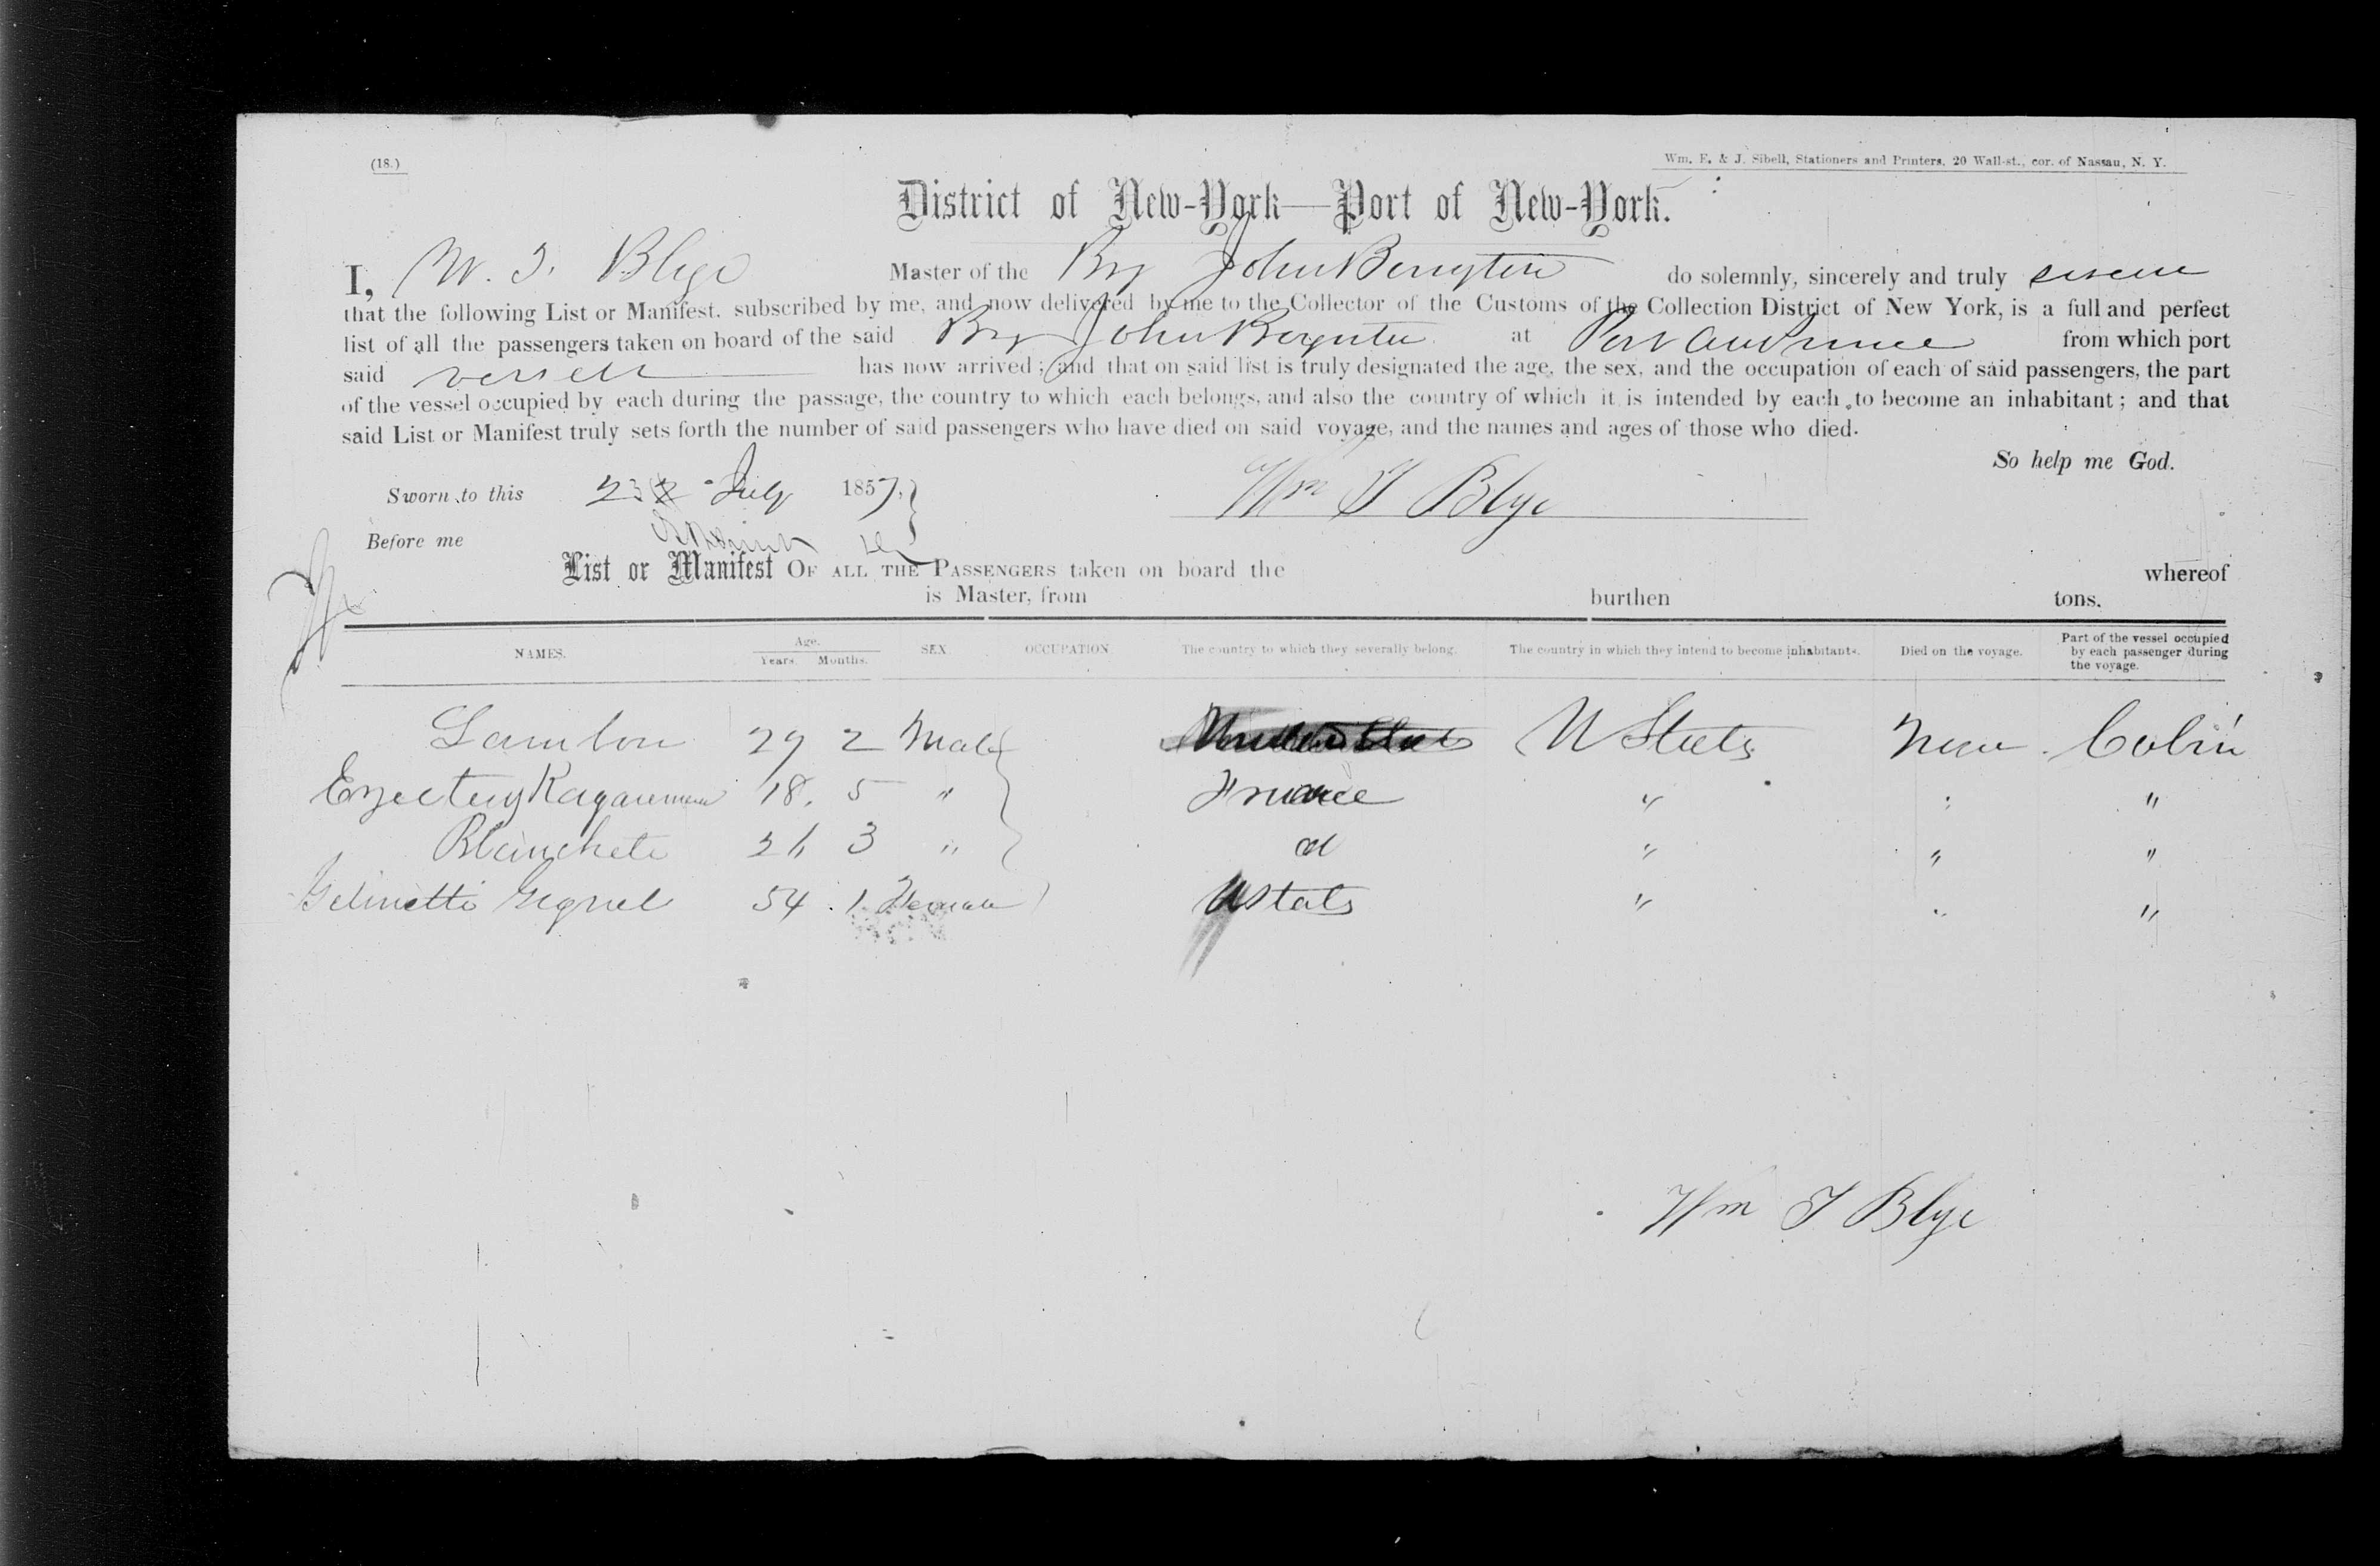 (18.)
Wm. E. & J. Sibell, Stationers and Printers, 20 Wall-st., cor. of Nassau, N. Y.
District of New-York—Port of New-York.
I, W. T. Blye Master of the Brg John Boynton do solemnly, sincerely and truly
that the following List or Manifest, subscribed by me, and now delivered by me to the Collector of the Customs of the Collection District of New York, is a full and perfect
list of all the passengers taken on board of the said Brg John Boynton at Port Au Prince from which port
said vessell has now arrived; and that on said list is truly designated the age, the sex, and the occupation of each of said passengers, the part
of the vessel occupied by each during the passage, the country to which each belongs, and also the country of which it is intended by each to become an inhabitant; and that
said List or Manifest truly sets forth the number of said passengers who have died on said voyage, and the names and ages of those who died.
So help me God.
Sworn to this 23 July 1857,
Wm T Blye
Before me
List or Manifest OF ALL THE PASSENGERS taken on board the whereof
is Master, from burthen tons.
NAMES. Age. Years. Months. SEX. OCCUPATION. The country to which they severally belong. The country in which they intend to become inhabitants. Died on the voyage. Part of the vessel occupied by each passenger during the voyage.
29 2 Male U States Cabin
18. 5 " France " "
Blanchete 26 3 " " " "
54 1 Female U Stats " "
Wm T Blye